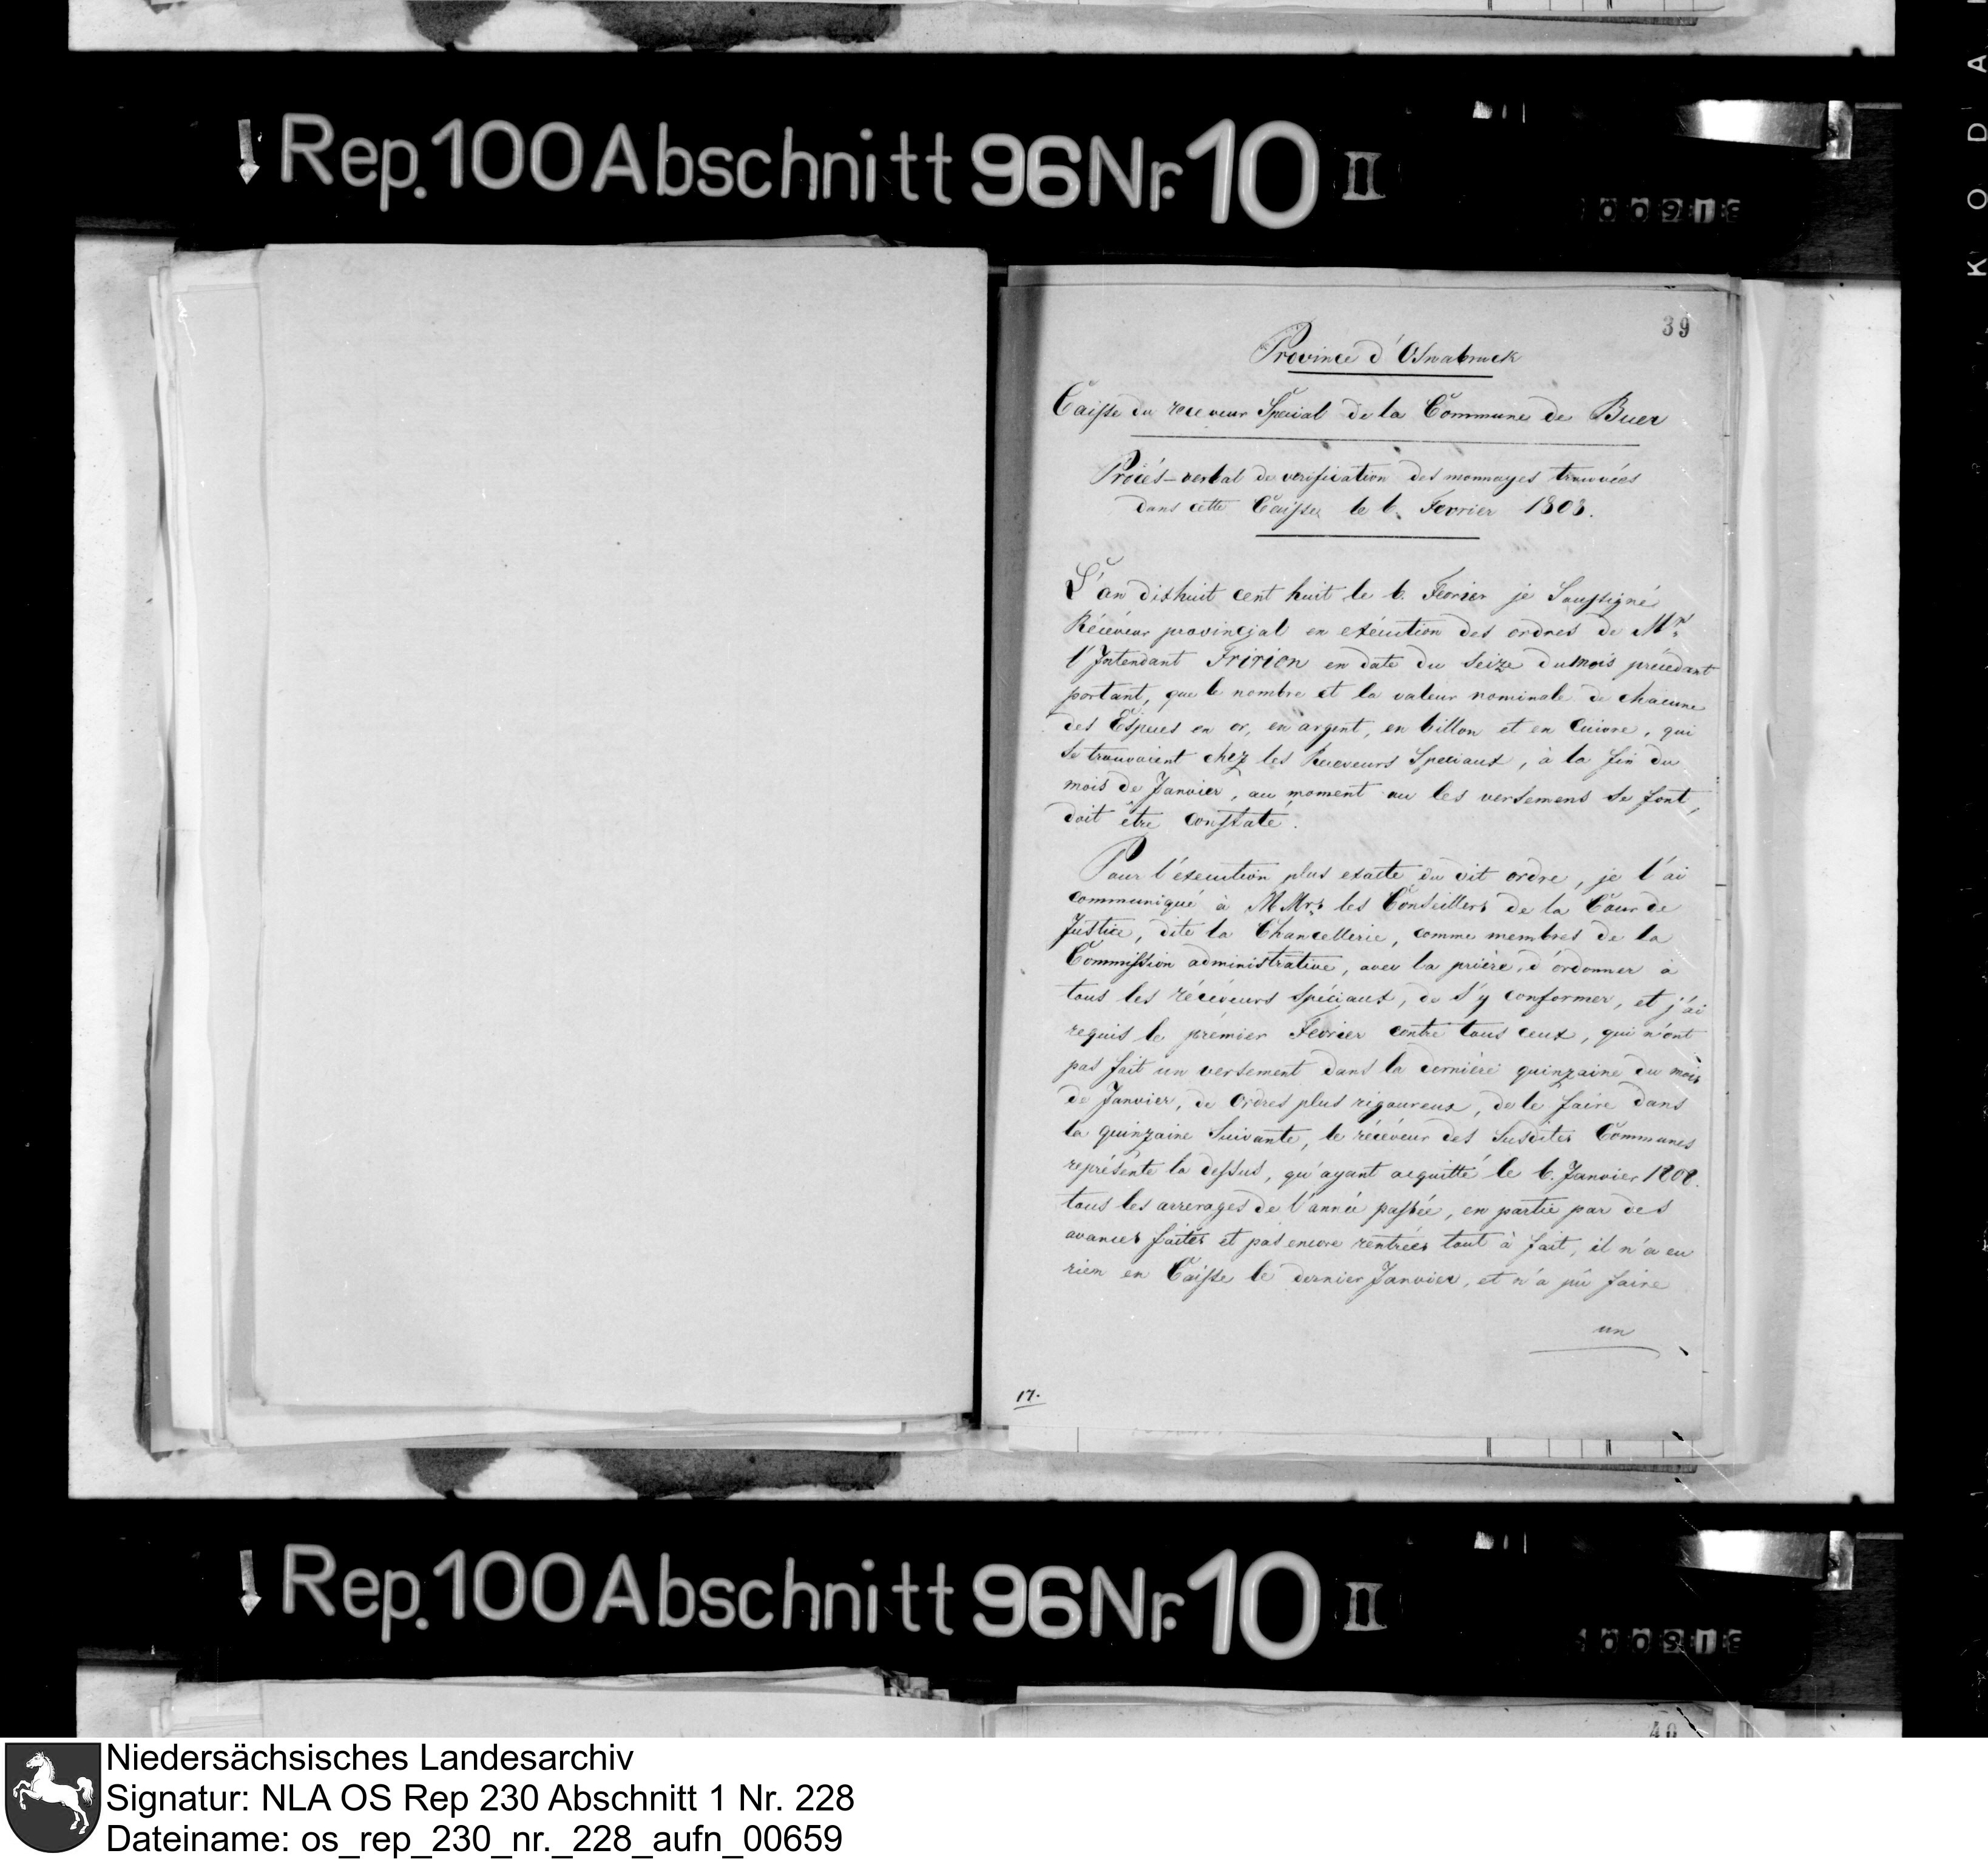 ↓ Rep. 100 Abschnitt 96 Nr. 10 II
KODA
39
Province d'Osnabruck
Caisse du receveur Special de la Commune de Buer
Procés-verbal de verification des monnayes trouvées
dans cette Caisse le 6. Fevrier 1808.
L'an dixhuit cent huit le 6. Fevrier je Soussigné
Récéveur provincjal en exécution des ordres de Mr.
l'Jntendant Fririon en date du Seize du mois précedant
portant, que le nombre et la valeur nominale de chacune
des Especes en or, en argent, en billon et en Cuivre, qui
se trouvoient chez les Receveurs Speciaux, à la fin du
mois de Janvier, au moment ou les versemens se font,
doit etre constaté.
Pour l'execution plus exacte du dit ordre, je l'ai
communiqué à MMrs les Conseillers de la Cour de
Justice, dite la Chancellerie, comme membres de la
Commission administrative, avec la prière, d'ordonner à
tous les récéveurs spéciaux, de s'y conformer, et j'ai
requis le premier Fevrier contre tous ceux, qui n'ont
pas fait un versement dans la derniere quinzaine du mois
de Janvier, de Ordres plus rigoureux, de le faire dans
la quinzaine Suivante, le récéveur des Susdites Communes
représente la dessus, qu'ayant acquitté le 6. Janvier 1808.
tous les arrerages de l'année passée, en partie par des
avances faites et pas encore rentrées tout à fait, il n'a eu
rien en Caisse le dernier Janvier, et n'a pû faire
un
17.
↓ Rep. 100 Abschnitt 96 Nr. 10 II
40
Niedersächsisches Landesarchiv
Signatur: NLA OS Rep 230 Abschnitt 1 Nr. 228
Dateiname: os_rep_230_nr._228_aufn_00659